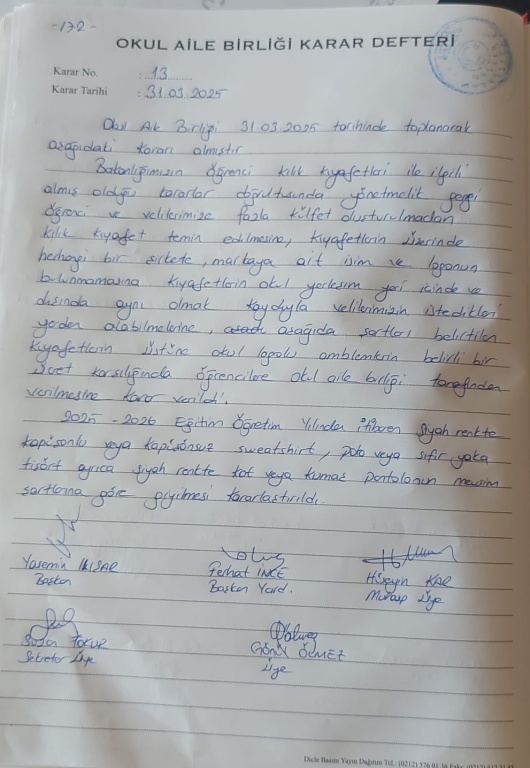 -172-
OKUL AİLE BİRLİĞİ KARAR DEFTERİ
Karar No. : 13
Karar Tarihi : 31.03.2025
Okul Aile Birliği 31.03.2025 tarihinde toplanarak
aşağıdaki kararı almıştır
Bakanlığımızın öğrenci kılık kıyafetleri ile ilgili
almış olduğu kararlar doğrultusunda yönetmelik gereği
öğrenci ve velilerimize fazla külfet oluşturulmadan
kılık kıyafet temin edilmesine, kıyafetlerin üzerinde
herhangi bir şirkete, markaya ait isim ve logonun
bulunmamasına kıyafetlerin okul yerleşim yeri içinde ve
dışında aynı olmak kaydıyla velilerimizin istedikleri
yerden alabilmelerine, aşağıda şartları belirtilen
kıyafetlerin üstüne okul logolu amblemlerin belirli bir
ücret karşılığında öğrencilere okul aile birliği tarafından
verilmesine karar verildi.
2025-2026 Eğitim Öğretim Yılından itibaren siyah renkte
kapişonlu veya kapişonsuz sweatshirt, polo veya sıfır yaka
tişört ayrıca siyah renkte kot veya kumaş pantolonun mevsim
şartlarına göre giyilmesi kararlaştırıldı.
Yasemin Ferhat İNCE Hüseyin KAR
Başkan Başkan Yard. Muhasip Üye
Gönül ÖLMEZ
Sekreter Üye Üye
Dicle Basım Yayın Dağıtım Tel.: (0212) 576 01 36